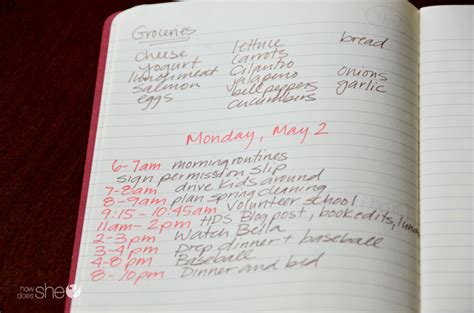 Groceries
cheese lettuce bread
yogurt carrots
lunchmeat cilantro
salmon jalapeno onions
eggs bell peppers garlic
cucumbers
Monday, May 2
6-7am morning routines
sign permission slip
7-8am drive kids around
8-9am plan spring cleaning
9:15-10:45am Volunteer school
11am-2pm HDS Blog post, book edits, lunch
2-3pm Watch Bella
3-4pm Prep dinner + baseball
4-8pm Baseball
8-10pm Dinner and bed
how does SHe